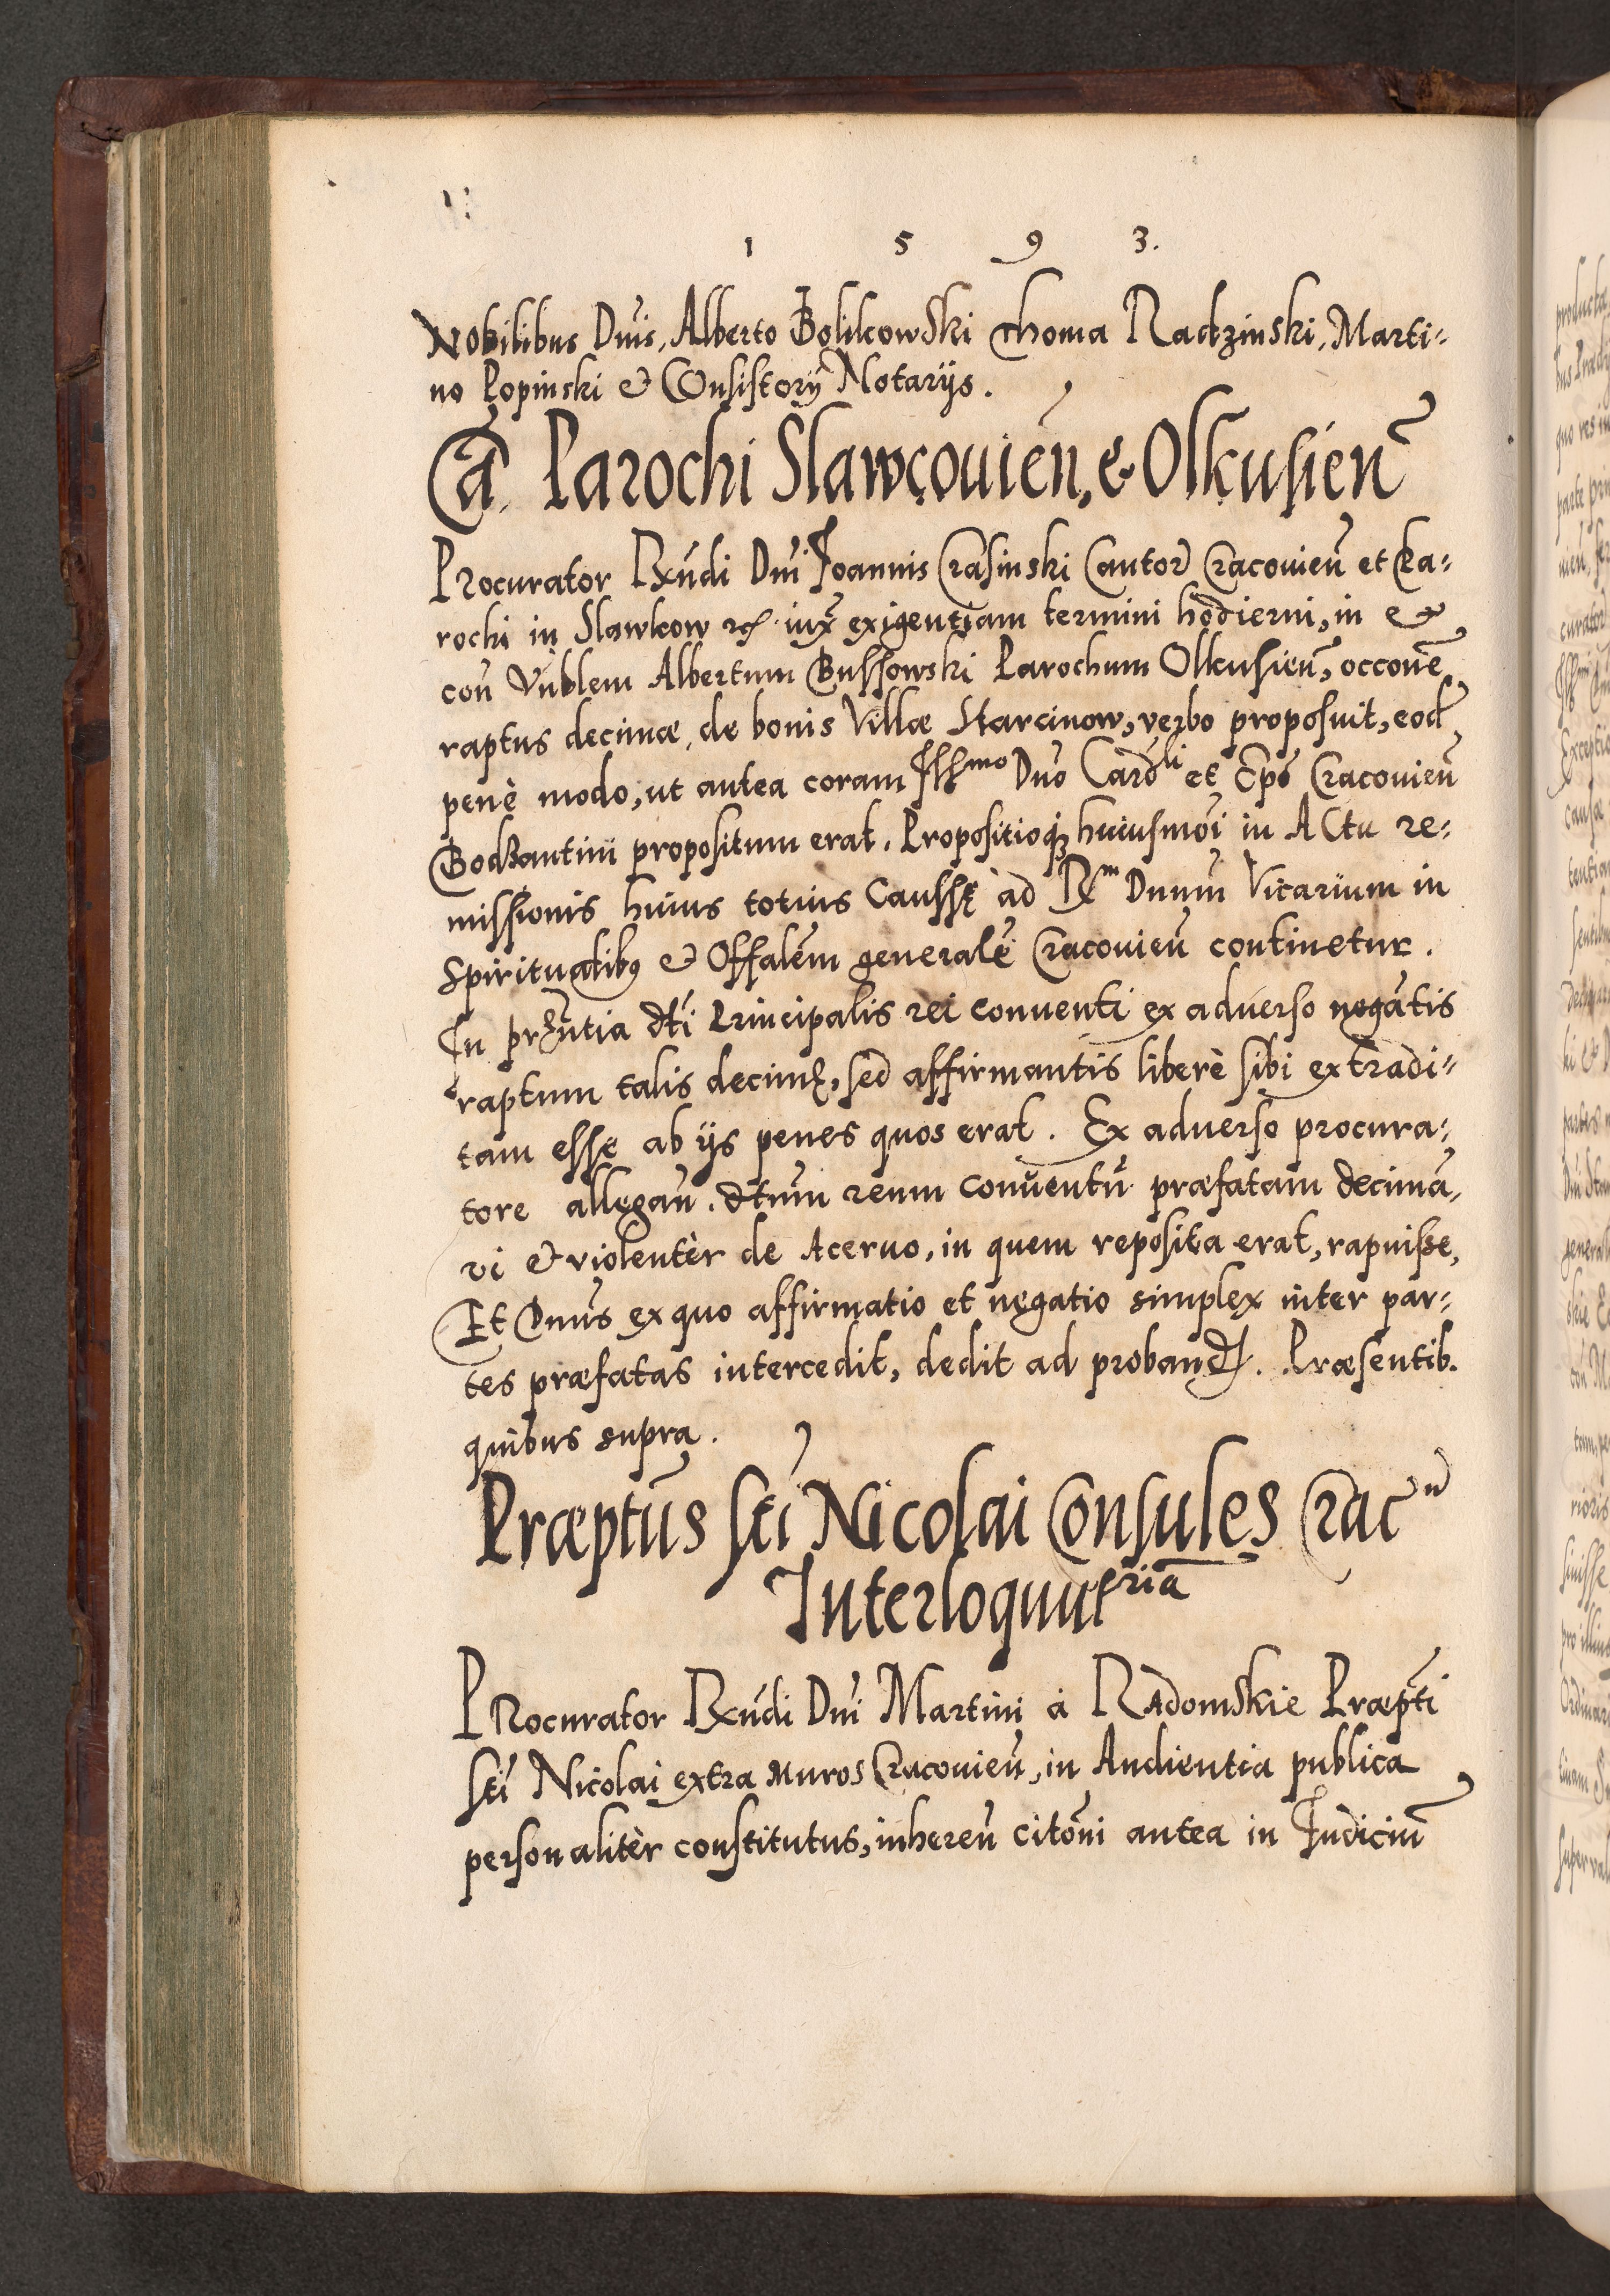 1 5 9 3.
Nobilibus Dnis, Alberto Bolikowski Thoma Radzinski, Marti-
no Lopinski & Consistorij Notarijs.
Cã. Parochi Slawcouien̄, & Olkusien̄
Procurator Rxndi Dni Joannis Crasinski Cantor Cracouien̄ et Pa-
rochi in Slawkow rc iux̄ exigentiam termini hodierni, in &
con̄ Vnblem Albertum Bussowski Parochum Olkusien̄, occone
raptus decimæ, de bonis Villæ Starcinow, verbo proposuit, eod
penè modo, ut antea coram Jllmo Dno Cardli et Epo Cracouien̄
Bodzantini propositum erat. Propositioq; huiusmoi in ACtu re-
missionis huius totius Caussę ad Rm Dnum Vicarium in
Spiritualibus & Offalem generalē Cracouien̄ continetur.
In prntia dti Principalis rei conuenti ex aduerso negatis
raptum talis decimę, sed affirmantis liberè sibi extradi-
tam esse ab ijs penes quos erat. Ex aduerso procura-
tore allegan̄. dtum reum conuentū præfatam decimā,
vi & violentèr de Aceruo, in quem reposita erat, rapuisse,
Et Dnus ex quo affirmatio et negatio simplex inter par-
tes præfatas intercedit, dedit ad proband. Præsentib.
quibus supra.
Præptus Sti Nicolai Consules Cracn
Interloqutria
Procurator Rxndi Dni Martini à Radomskie Præpti
Sti Nicolai extra muros Cracouien̄, in Audientia publica
personalitèr constitutus, inheren̄ citoni antea in Judiciū